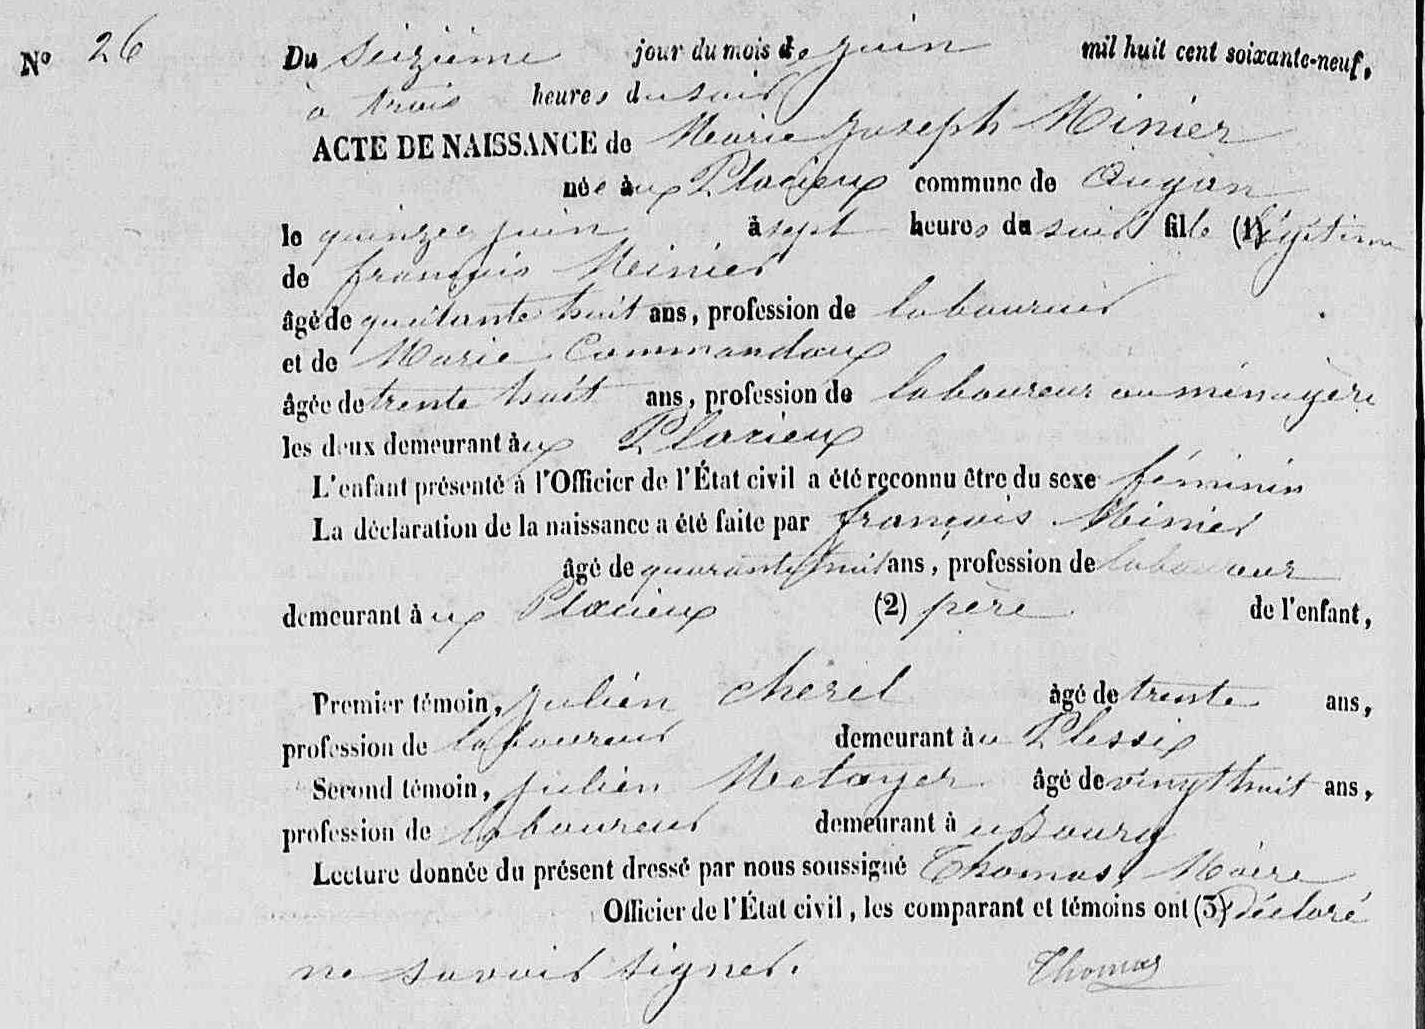 N° 26
Du seizième jour du mois de juin mil huit cent soixante-neuf,
à trois heures du soir
ACTE DE NAISSANCE de Marie Joseph Minier
née aux Placieux commune de Augan
le quinze juin à sept heures du soir fille (1) légitime
de françois Minier
âgé de quarante huit ans, profession de laboureur
et de Marie Commandoux
âgée de trente huit ans, profession de laboureur ou ménagère
les deux demeurant aux Placieux
L'enfant présenté à l'Officier de l'État civil a été reconnu être du sexe féminin
La déclaration de la naissance a été faite par françois Minier
âgé de quarante huit ans, profession de laboureur
demeurant aux Placieux (2) père de l'enfant,
Premier témoin, julien cherel âgé de trente ans,
profession de laboureur demeurant au Plessix
Second témoin, julien Metayer âgé de vingt huit ans,
profession de laboureur demeurant au Bourg
Lecture donnée du présent dressé par nous soussigné Thomas, Maire
Officier de l'État civil, les comparant et témoins ont (3) déclaré
ne savoir signer. Thomas